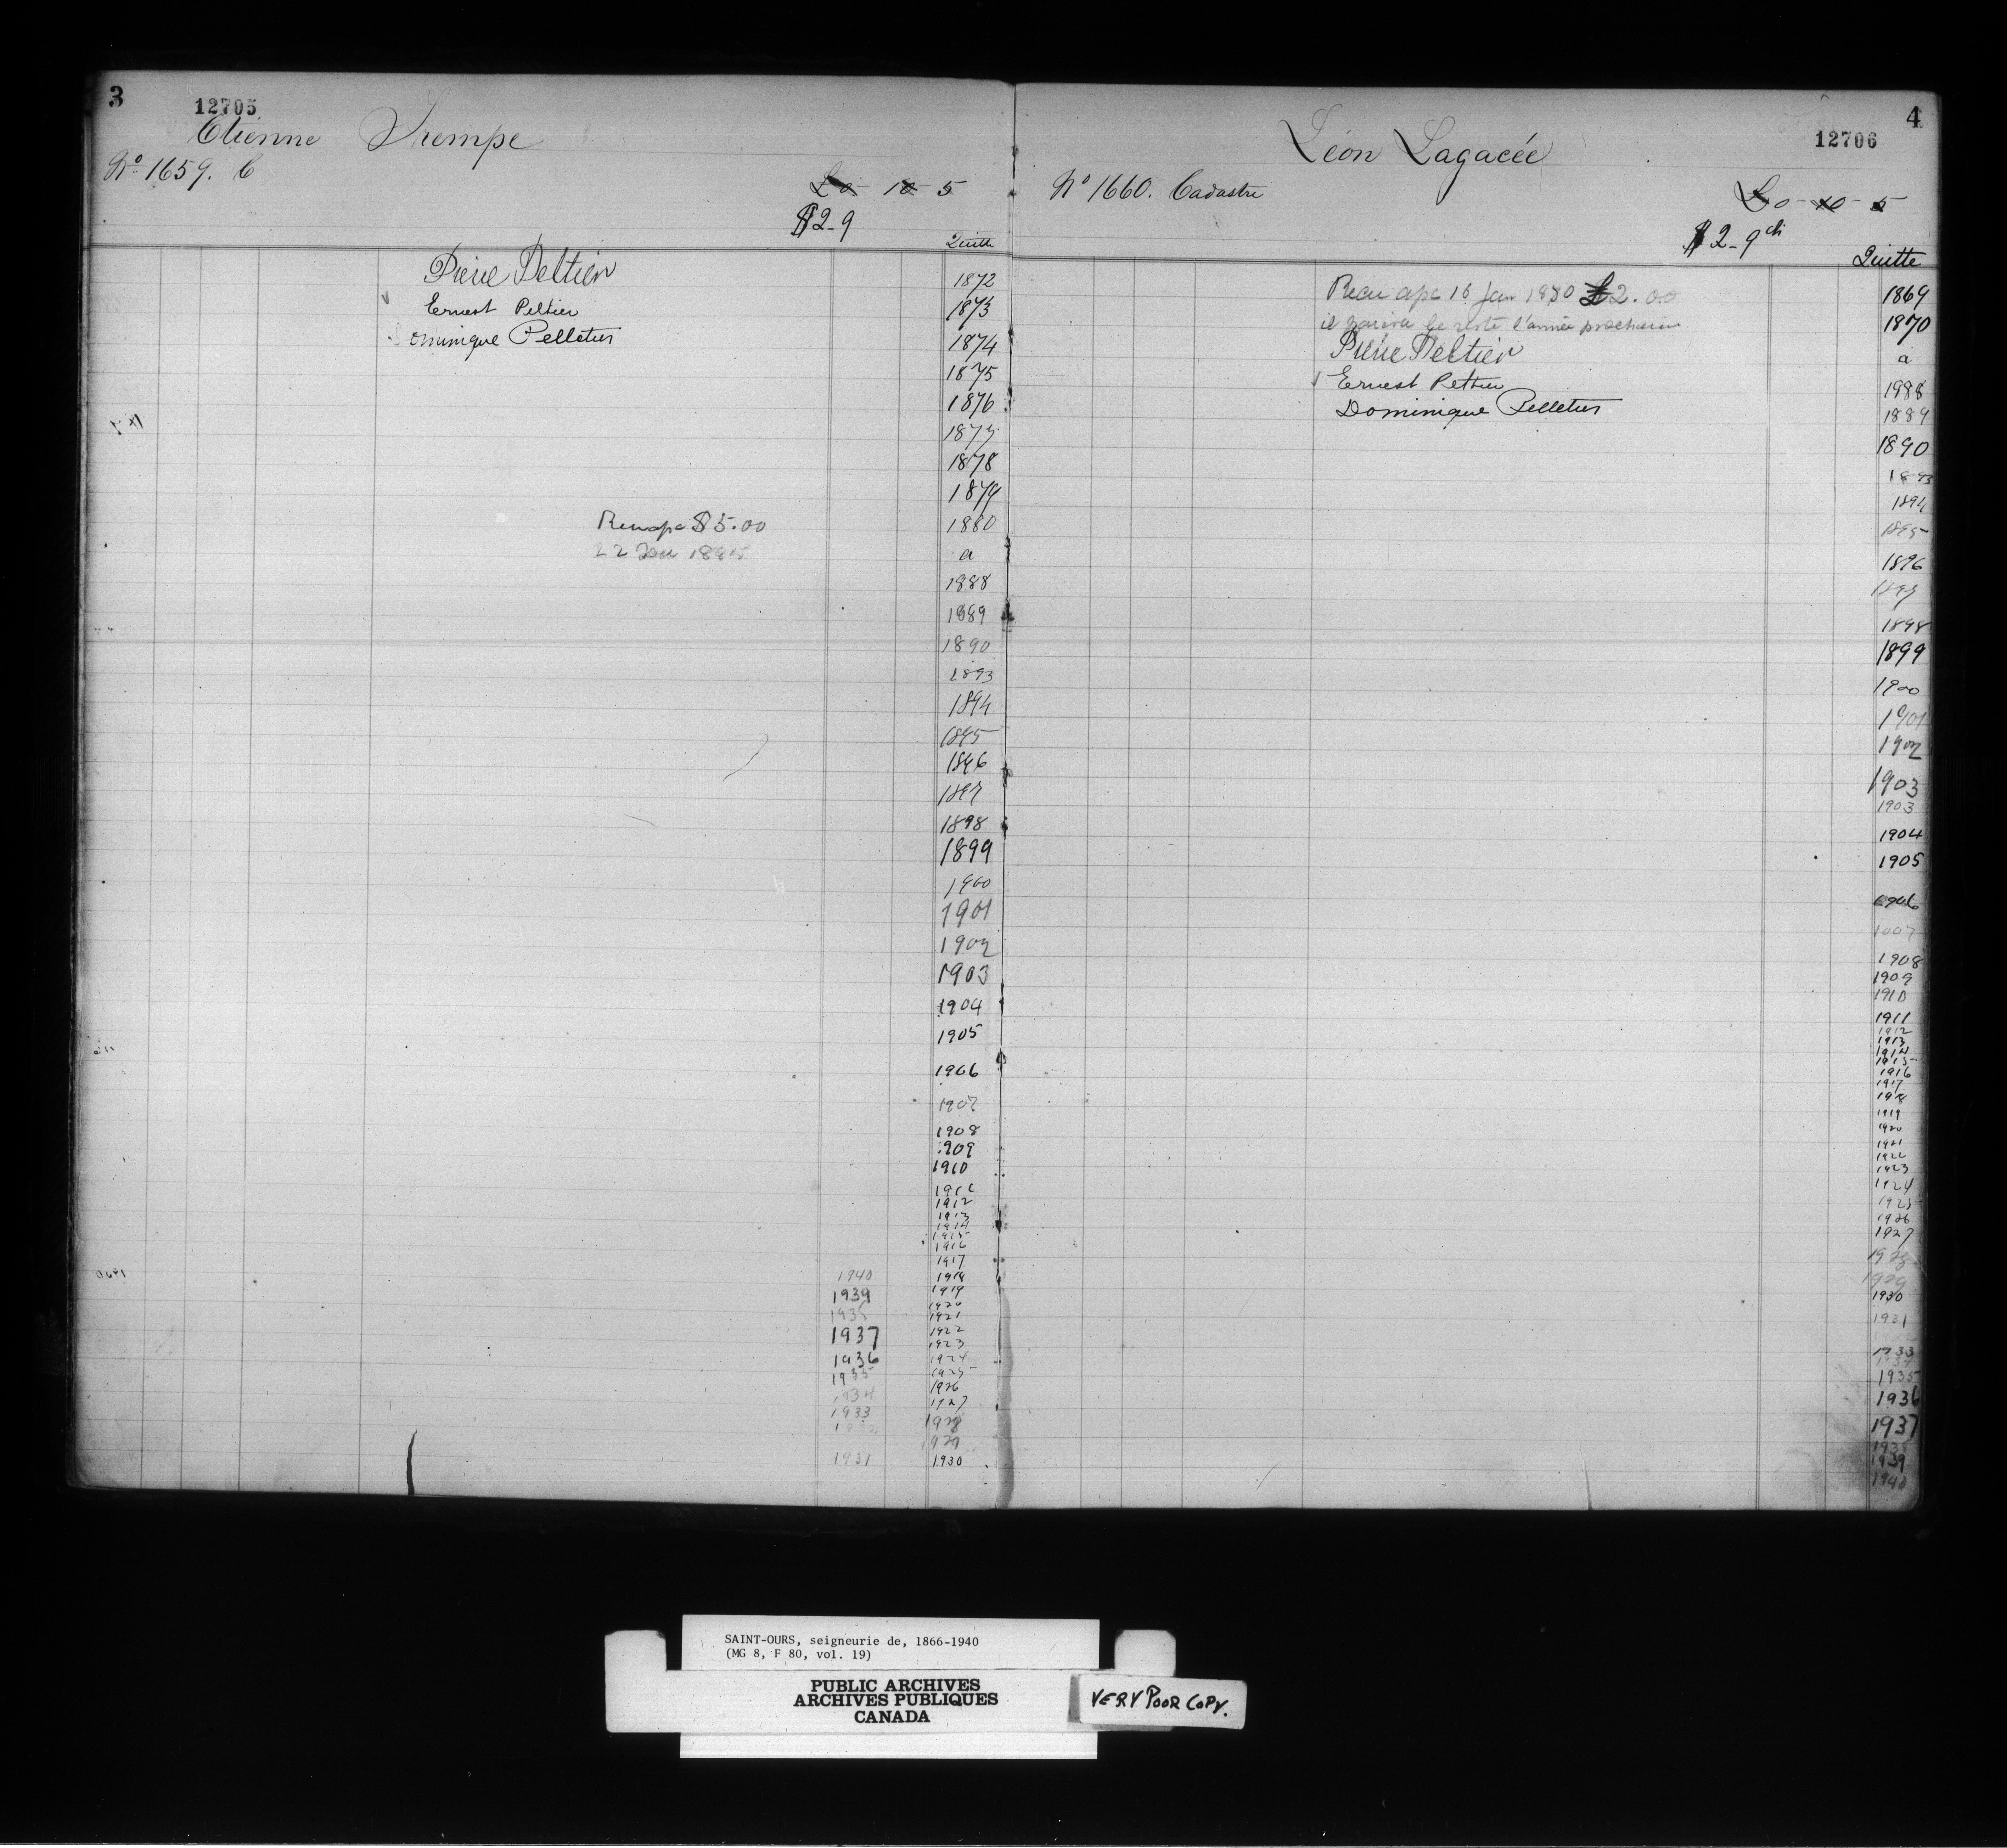 3
12705
Etienne Trempe
No 1659. C
£0 10 5
$2-9
Quitte
Pierre Peltier
Ernest Peltier
Dominique Pelletier
Recu apc $5.00
22 Jan 1895
1872
1873
1874
1875
1876
1877
1878
1879
1880
a
1888
1889
1890
1893
1894
1895
1896
1897
1898
1899
1900
1901
1902
1903
1904
1905
1906
1907
1908
1909
1910
1911
1912
1913
1914
1915
1916
1917
1918
1919
1920
1921
1922
1923
1924
1925
1926
1927
1928
1929
1930
1940
1939
1938
1937
1936
1935
1934
1933
1932
1931
4
12706
Léon Lagacée
No 1660. Cadastre
£0-10-5
$2-9 cts
Quitte
Recu apc 16 Jan 1880 $2.00
il paiera le reste l'année prochaine
Pierre Peltier
Ernest Peltier
Dominique Pelletier
1869
1870
a
1988
1889
1890
1893
1894
1895
1896
1897
1898
1899
1900
1901
1902
1903
1903
1904
1905
1906
1907
1908
1909
1910
1911
1912
1913
1914
1915
1916
1917
1918
1919
1920
1921
1922
1923
1924
1925
1926
1927
1928
1929
1930
1931
1933
1934
1935
1936
1937
1938
1939
1940
SAINT-OURS, seigneurie de, 1866-1940
(MG 8, F 80, vol. 19)
PUBLIC ARCHIVES
ARCHIVES PUBLIQUES
CANADA
VERY POOR COPY.